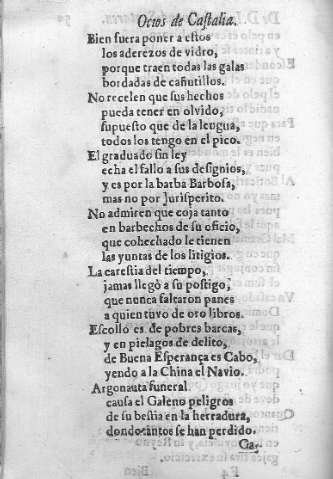 Ocios de Caſtalia.
Bien fuera poner a eſtos
los aderezos de vidro,
porque traen todas las galas
bordadas de cañutillos.
No recelen que ſus hechos
pueda tener en olvido,
ſupueſto que de la lengua,
todos los tengo en el pico.
El graduado ſin ley
echa el fallo a ſus deſignios,
y es por la barba Barboſa,
mas no por Juriſperito.
No admiren que coja tanto
en barbechos de ſu oficio,
que cohechado le tienen
las yuntas de los litigios.
La careſtia del tiempo,
jamas llegò a ſu poſtigo,
que nunca faltaron panes
a quien tuvo de oro libros.
Eſcollo es de pobres barcas,
y en pielagos de delito,
de Buena Eſperança es Cabo,
yendo a la China el Navio.
Argonauta funeral
cauſa el Galeno peligros
de ſu beſtia en la herradura,
dondo tantos ſe han perdido.
Ga-